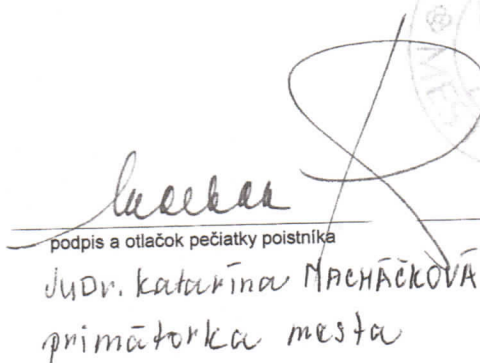 MES
podpis a otlačok pečiatky poistníka
JUDr. Katarína MACHÁČKOVÁ
primátorka mesta